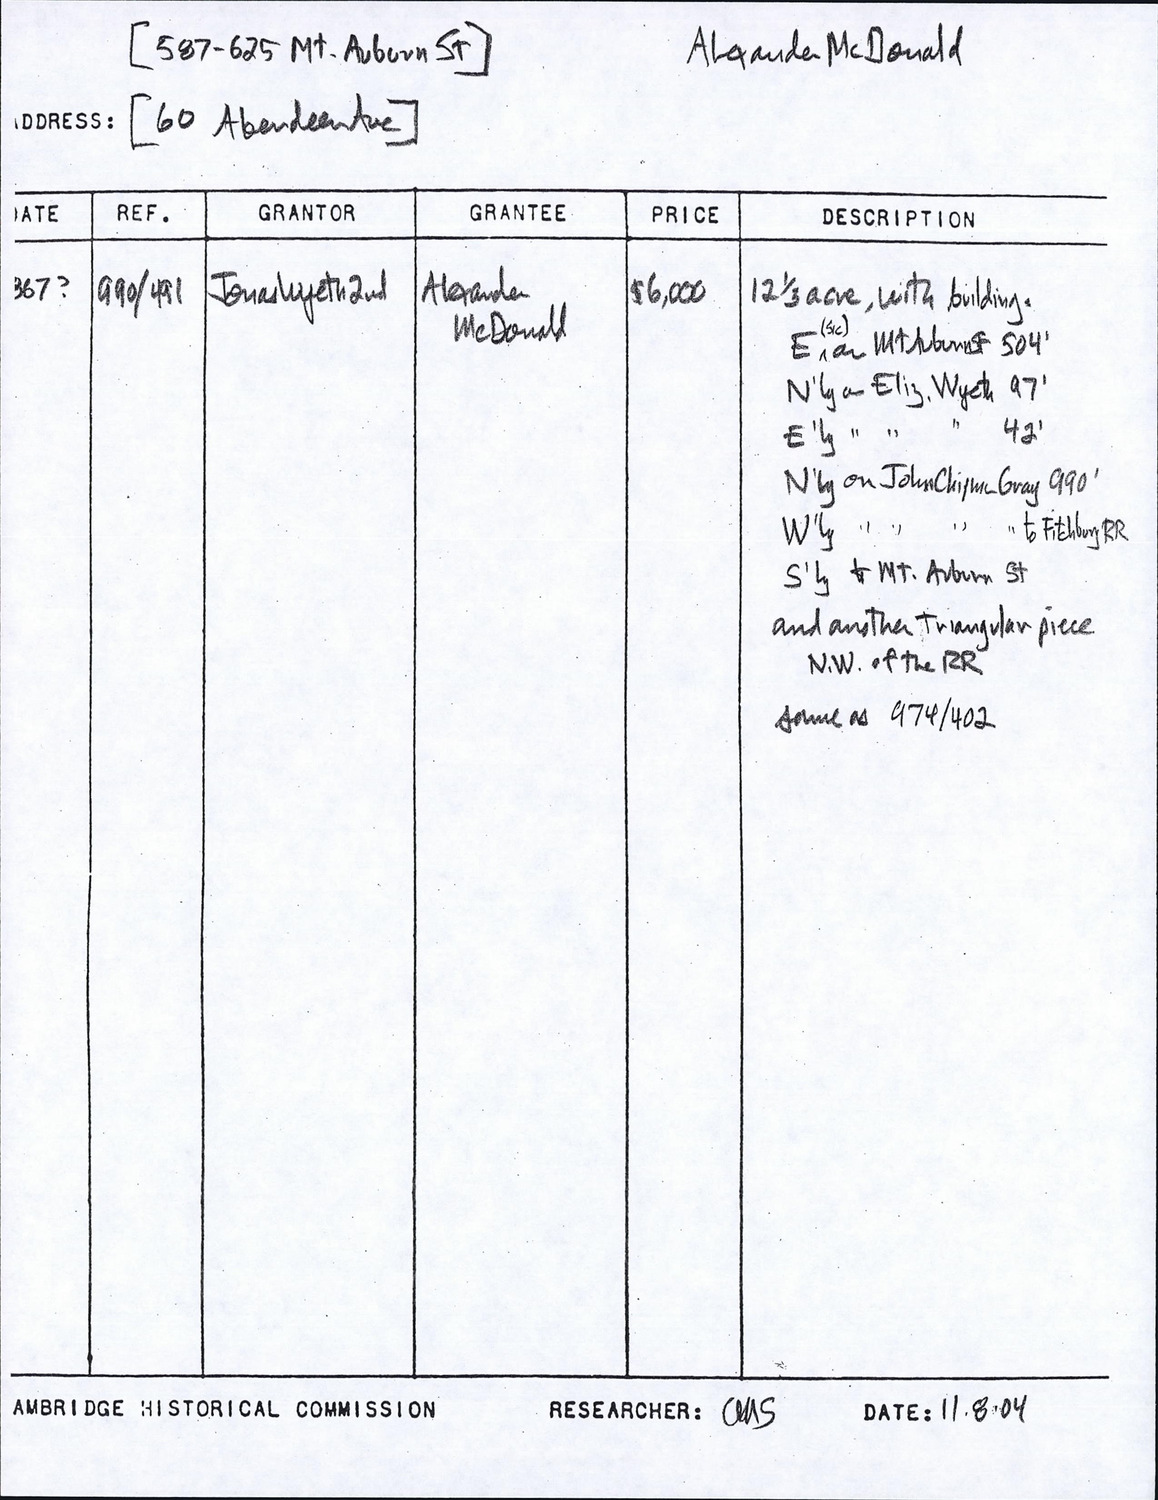 [587-625 Mt. Auburn St] Alexander McDonald
ADDRESS: [60 Aberdeen Ave]
DATE REF. GRANTOR GRANTEE PRICE DESCRIPTION
867? 990/491 Jonas Wyeth 2nd Alexander McDonald $6,000 12 1/3 acre, with building.
E (sic) on Mt Auburn St 504'
N'ly on Eliz. Wyeth 97'
E'ly " " " 42'
N'ly on John Chipman Gray 990'
W'ly " " " " to Fitchburg RR
S'ly to Mt. Auburn St
and another triangular piece
N.W. of the RR
same as 974/402
AMBRIDGE HISTORICAL COMMISSION RESEARCHER: CMS DATE: 11.8.04